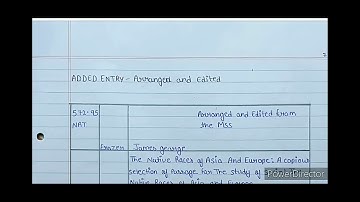 ADDED ENTRY - Arranged and Edited
572.95
NAT.
Arranged and Edited from
the MSS
Frazer James george
The Native Races of Asia And Europe: A copious
selection of Passage For The Study of
Native Races of Asia and Europe
PowerDirector